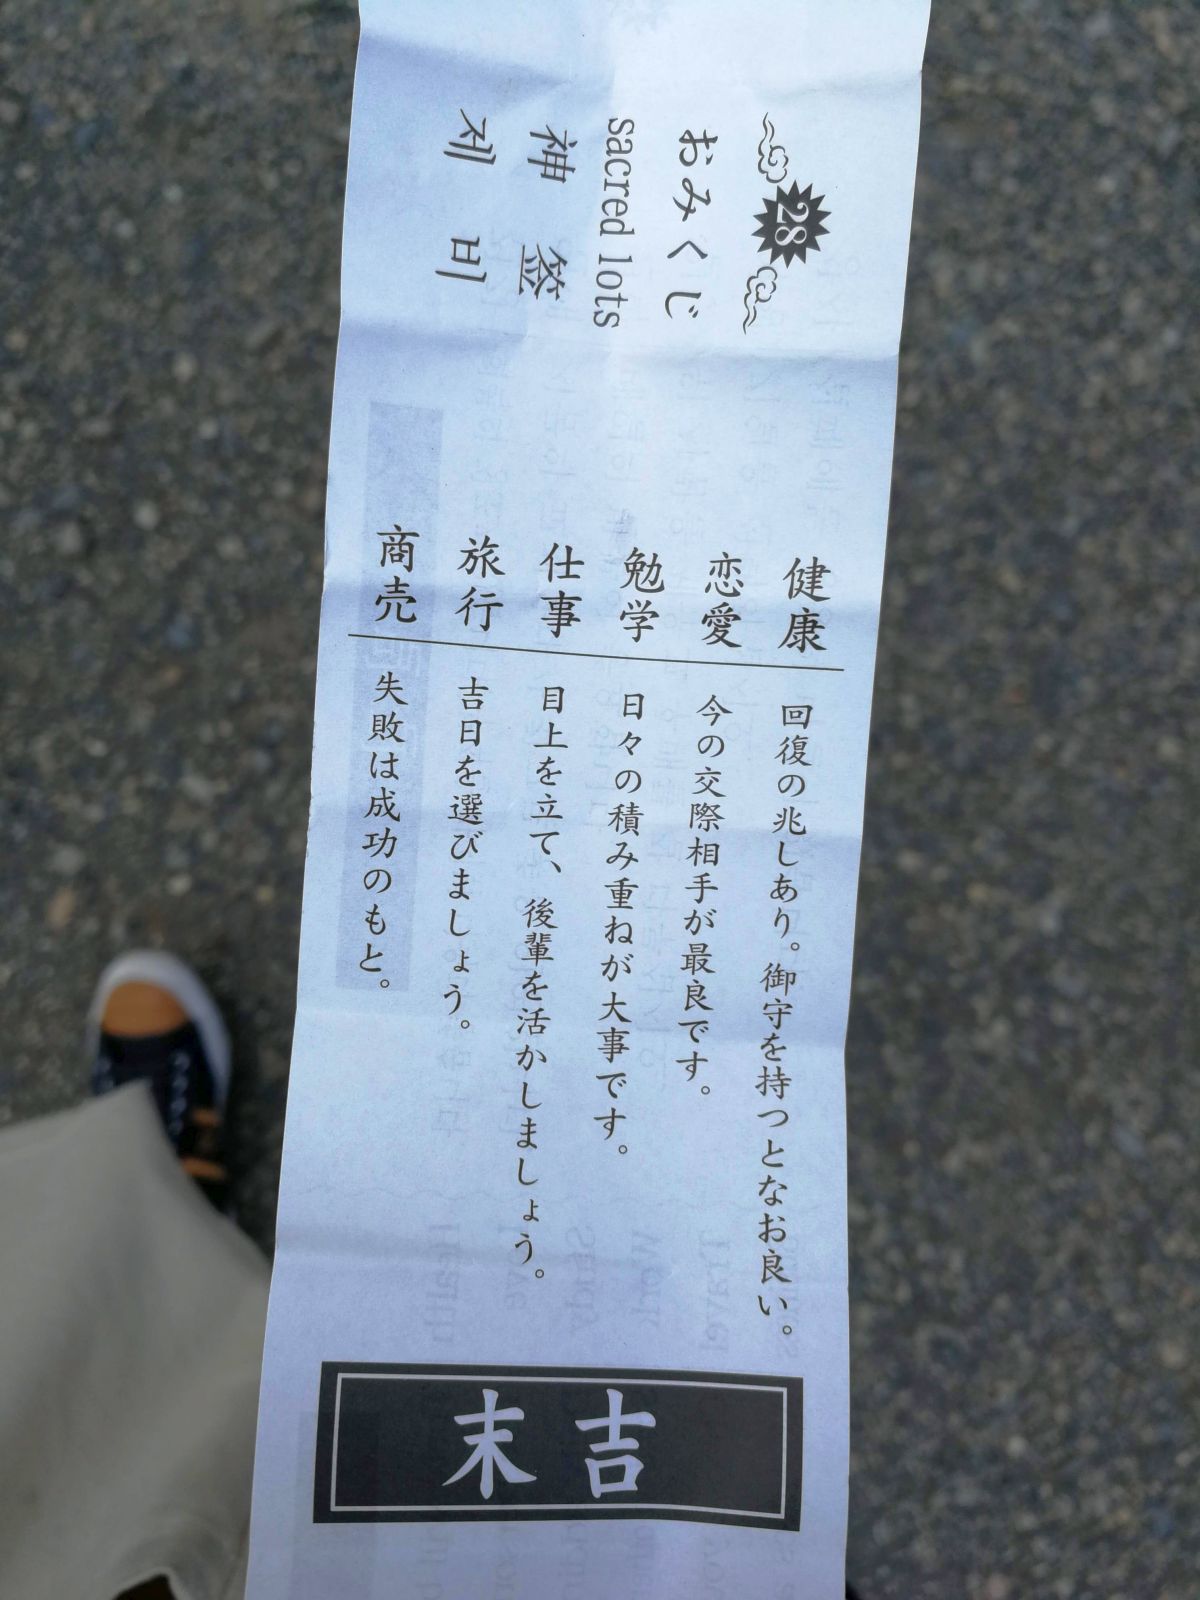 28
おみくじ
sacred lots
神签
제비
健康 回復の兆しあり。御守を持つとなお良い。
恋愛 今の交際相手が最良です。
勉学 日々の積み重ねが大事です。
仕事 目上を立て、後輩を活かしましょう。
旅行 吉日を選びましょう。
商売 失敗は成功のもと。
末吉